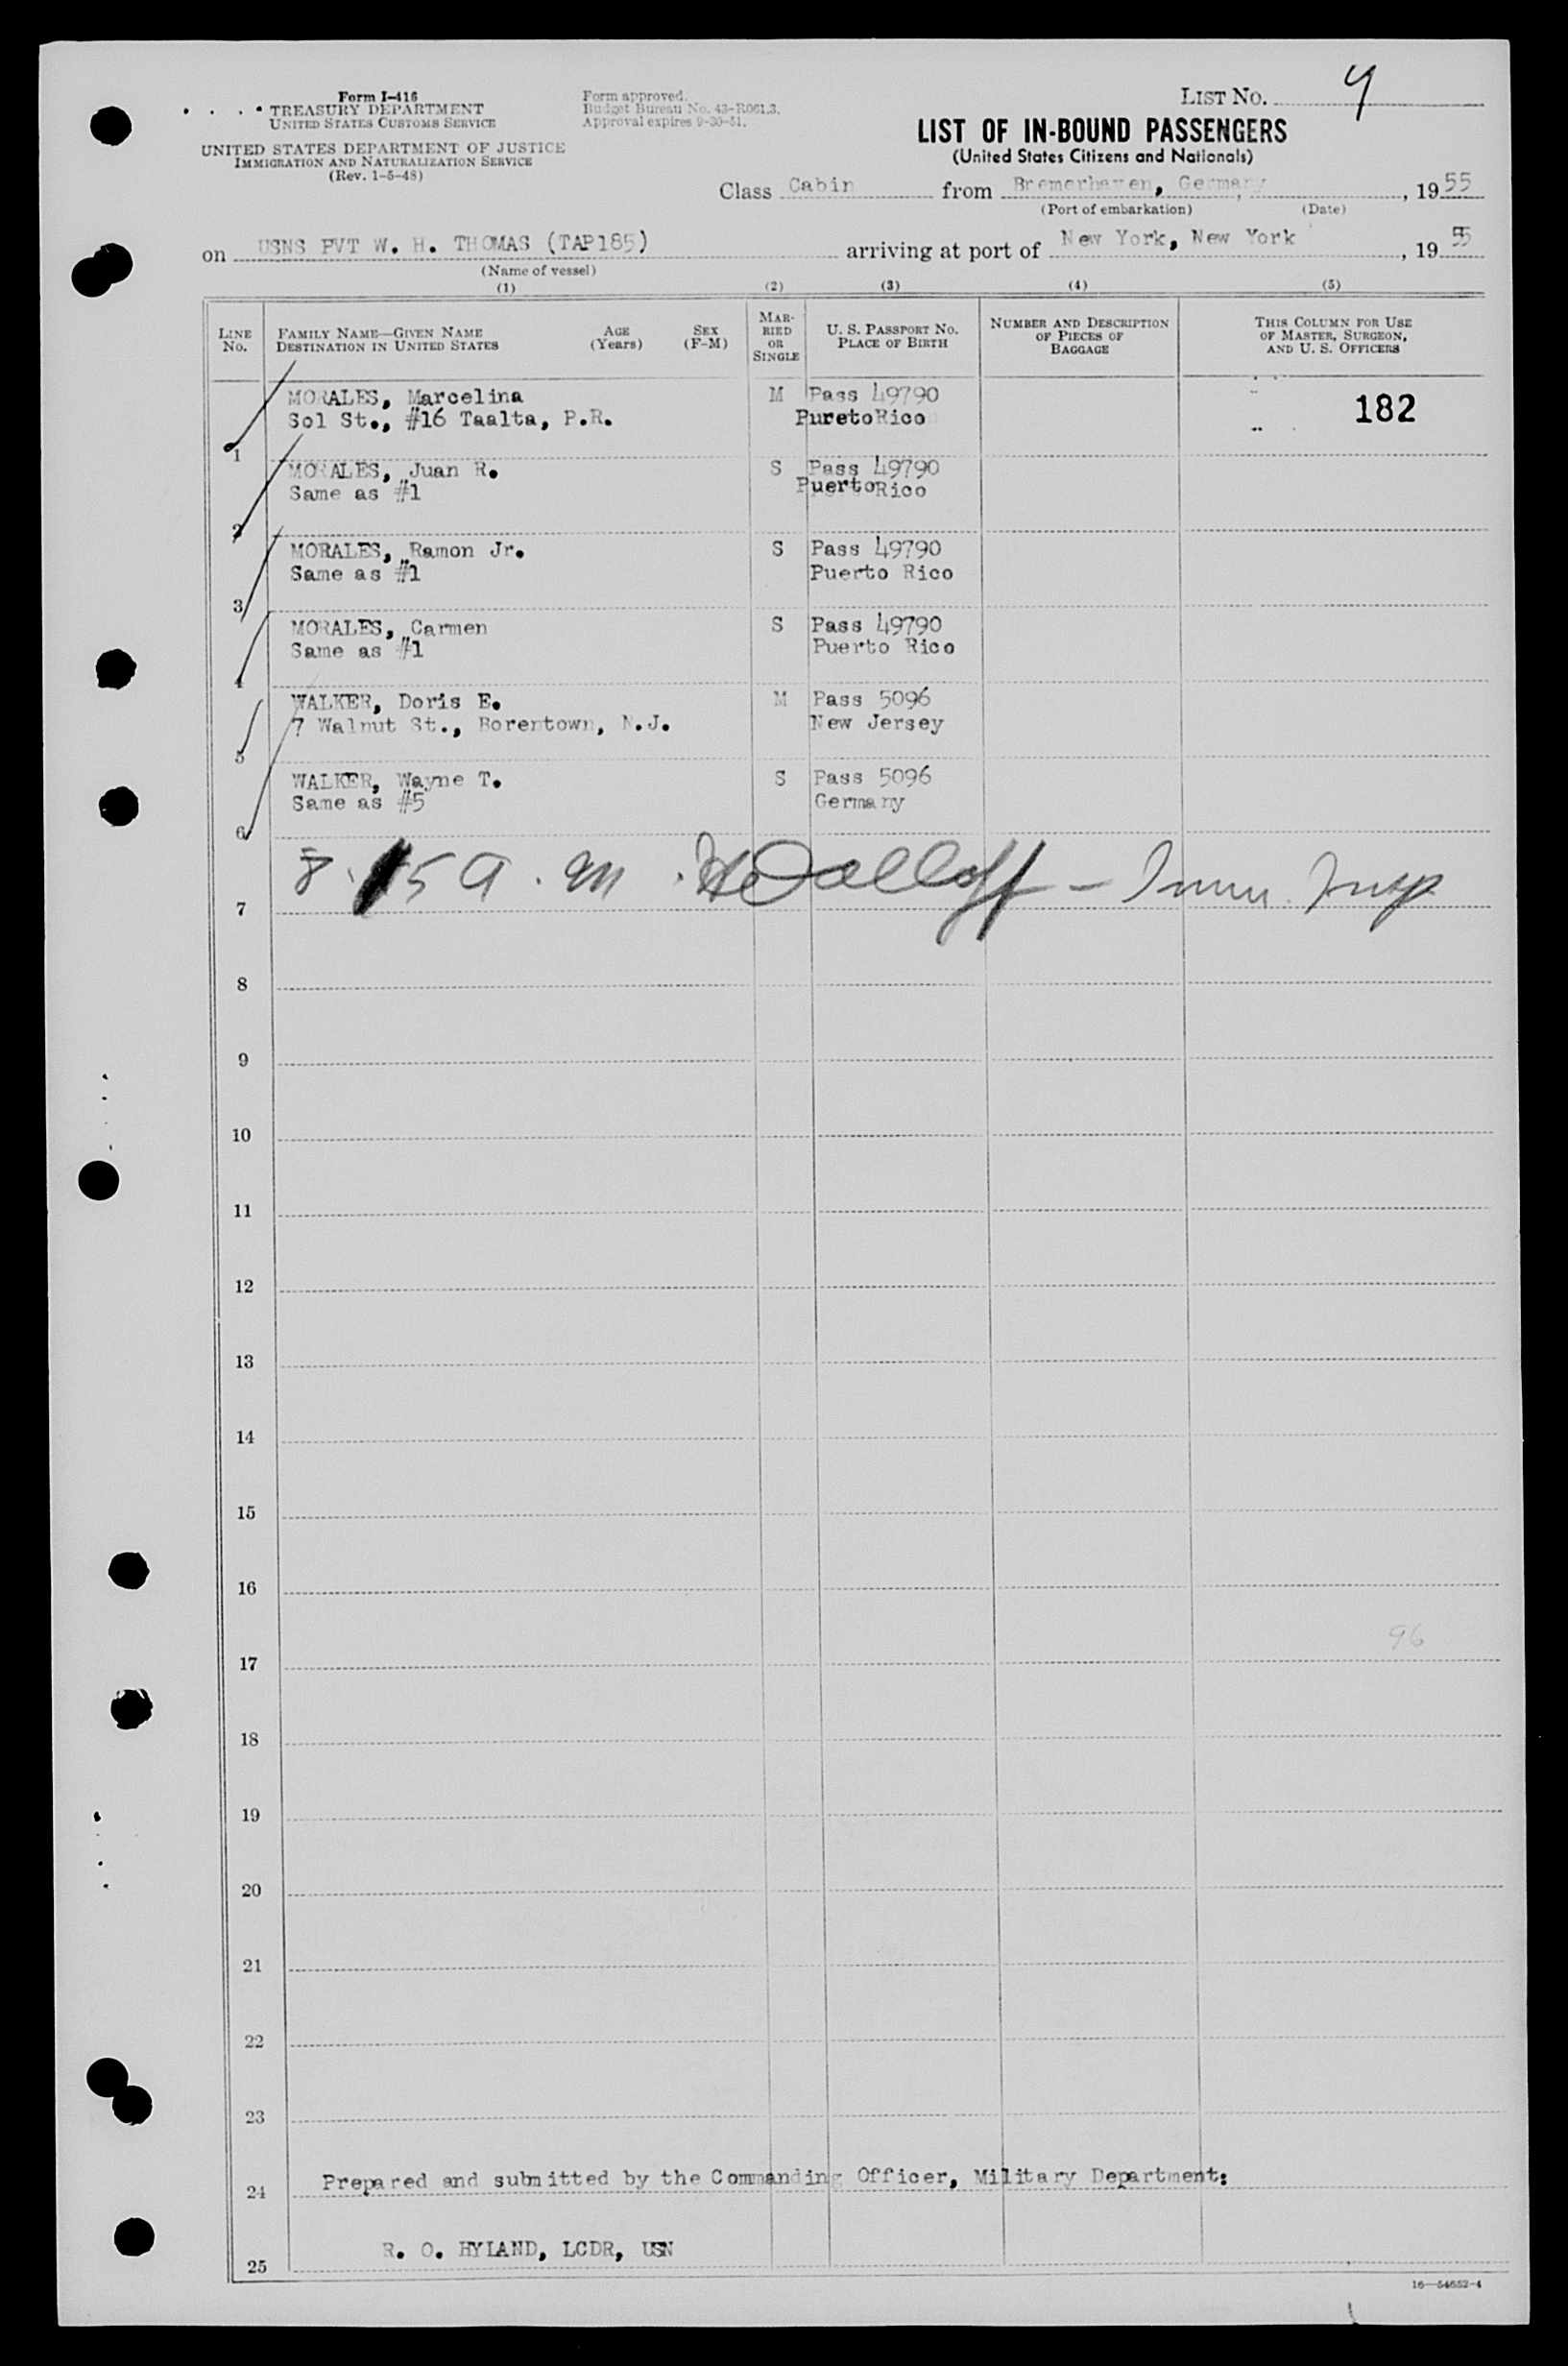 Form I-416
TREASURY DEPARTMENT
UNITED STATES CUSTOMS SERVICE
UNITED STATES DEPARTMENT OF JUSTICE
IMMIGRATION AND NATURALIZATION SERVICE
(Rev. 1-5-48)
Form approved.
Budget Bureau No. 43-R061.3.
Approval expires 9-30-51.
LIST No. 9
LIST OF IN-BOUND PASSENGERS
(United States Citizens and Nationals)
Class Cabin from Bremerhaven, Germany, 1955
(Port of embarkation) (Date)
on USNS PVT W. H. THOMAS (TAP185) arriving at port of New York, New York, 1955
(Name of vessel)
(1) (2) (3) (4) (5)
LINE No.
FAMILY NAME—GIVEN NAME
DESTINATION IN UNITED STATES
AGE (Years)
SEX (F-M)
MARRIED OR SINGLE
U. S. PASSPORT No.
PLACE OF BIRTH
NUMBER AND DESCRIPTION OF PIECES OF BAGGAGE
THIS COLUMN FOR USE OF MASTER, SURGEON, AND U. S. OFFICERS
MORALES, Marcelina M Pass 49790 182
Sol St., #16 Taalta, P.R. PuretoRico
1
MORALES, Juan R. S Pass 49790
Same as #1 PuertoRico
2
MORALES, Ramon Jr. S Pass 49790
Same as #1 Puerto Rico
3
MORALES, Carmen S Pass 49790
Same as #1 Puerto Rico
4
WALKER, Doris E. M Pass 5096
7 Walnut St., Borentown, N.J. New Jersey
5
WALKER, Wayne T. S Pass 5096
Same as #5 Germany
6
A.M. - Imm. Insp
7
8
9
10
11
12
13
14
15
16
96
17
18
19
20
21
22
23
Prepared and submitted by the Commanding Officer, Military Department:
24
R. O. HYLAND, LCDR, USN
25
16—54652-4